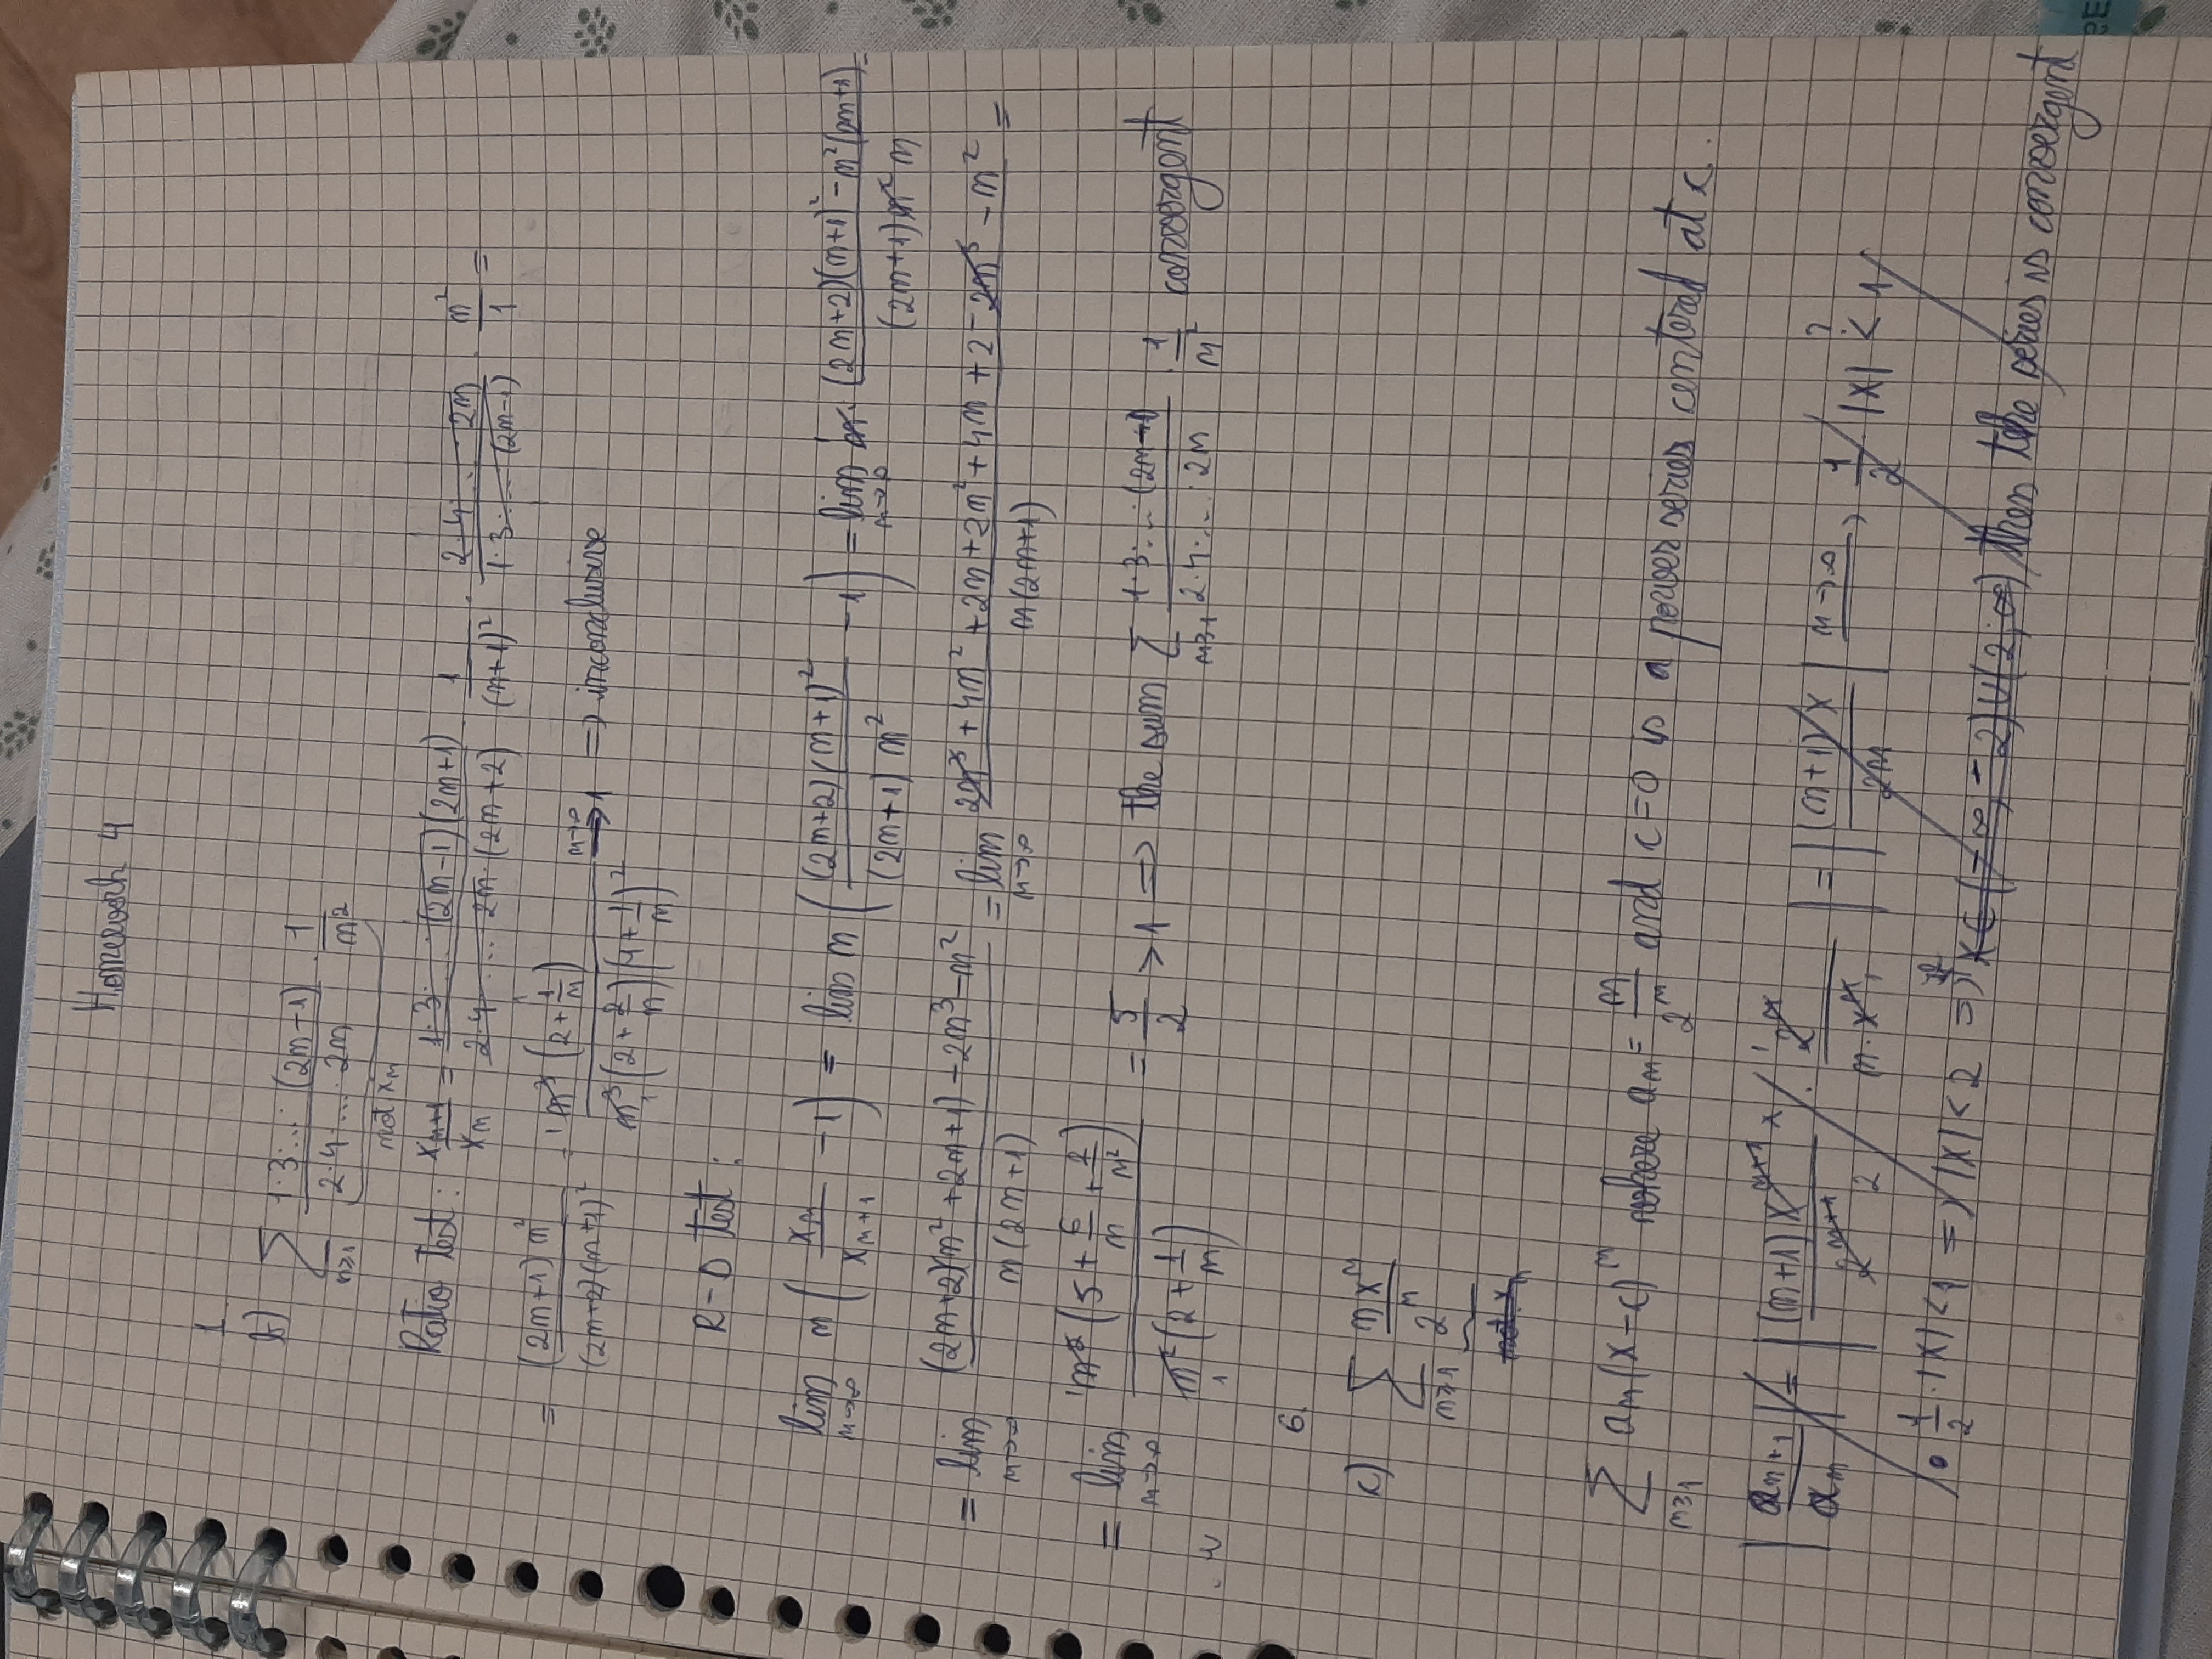 Homework 4
1.
b) ∑_{n≥1} (1·3·...·(2n-1))/(2·4·...·2n) · 1/n²
not x_n
Ratio test: x_{n+1}/x_n = (1·3·...·(2n-1)(2n+1))/(2·4·...·2n·(2n+2)) · 1/(n+1)² · (2·4·...·2n)/(1·3·...·(2n-1)) · n²/1 =
= ((2n+1) n²)/((2n+2)(n+1)²) = (n³(2+1/n))/(n³(2+2/n)(1+1/n)²) →^{n→∞} 1 => inconclusive
R-D test:
lim_{n→∞} n(x_n/x_{n+1} - 1) = lim n(((2n+2)(n+1)²)/((2n+1) n²) - 1) = lim_{n→∞} n · ((2n+2)(n+1)² - n²(2n+1))/((2n+1)n² n) =
= lim_{n→∞} ((2n+2)(n²+2n+1) - 2n³ - n²)/(n(2n+1)) = lim_{n→∞} (2n³ + 4n² + 2n + 2n² + 4n + 2 - 2n³ - n²)/(n(2n+1)) =
= lim_{n→∞} (n²(5 + 6/n + 2/n²))/(n²(2 + 1/n)) = 5/2 > 1 => the sum ∑_{n≥1} (1·3·...·(2n-1))/(2·4·...·2n) · 1/n² convergent
6.
c) ∑_{n≥1} (n x^n)/2^n
not. x_n
∑_{n≥1} a_n(x-c)^n where a_n = n/2^n and c=0 is a power series centered at c.
|a_{n+1}/a_n| = |((n+1) x^{n+1} x)/(2^{n+1} 2) · 2^n/(n·x^n)| = |((n+1) x)/(2n)| →^{n→∞} 1/2 |x| <^? 1
• 1/2 · |x| < 1 => |x| < 2 => if x∈(-∞, -2)∪(2; ∞) then the series is convergent